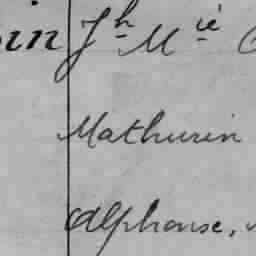 in Jh Mie
Mathurin
Alphonse,